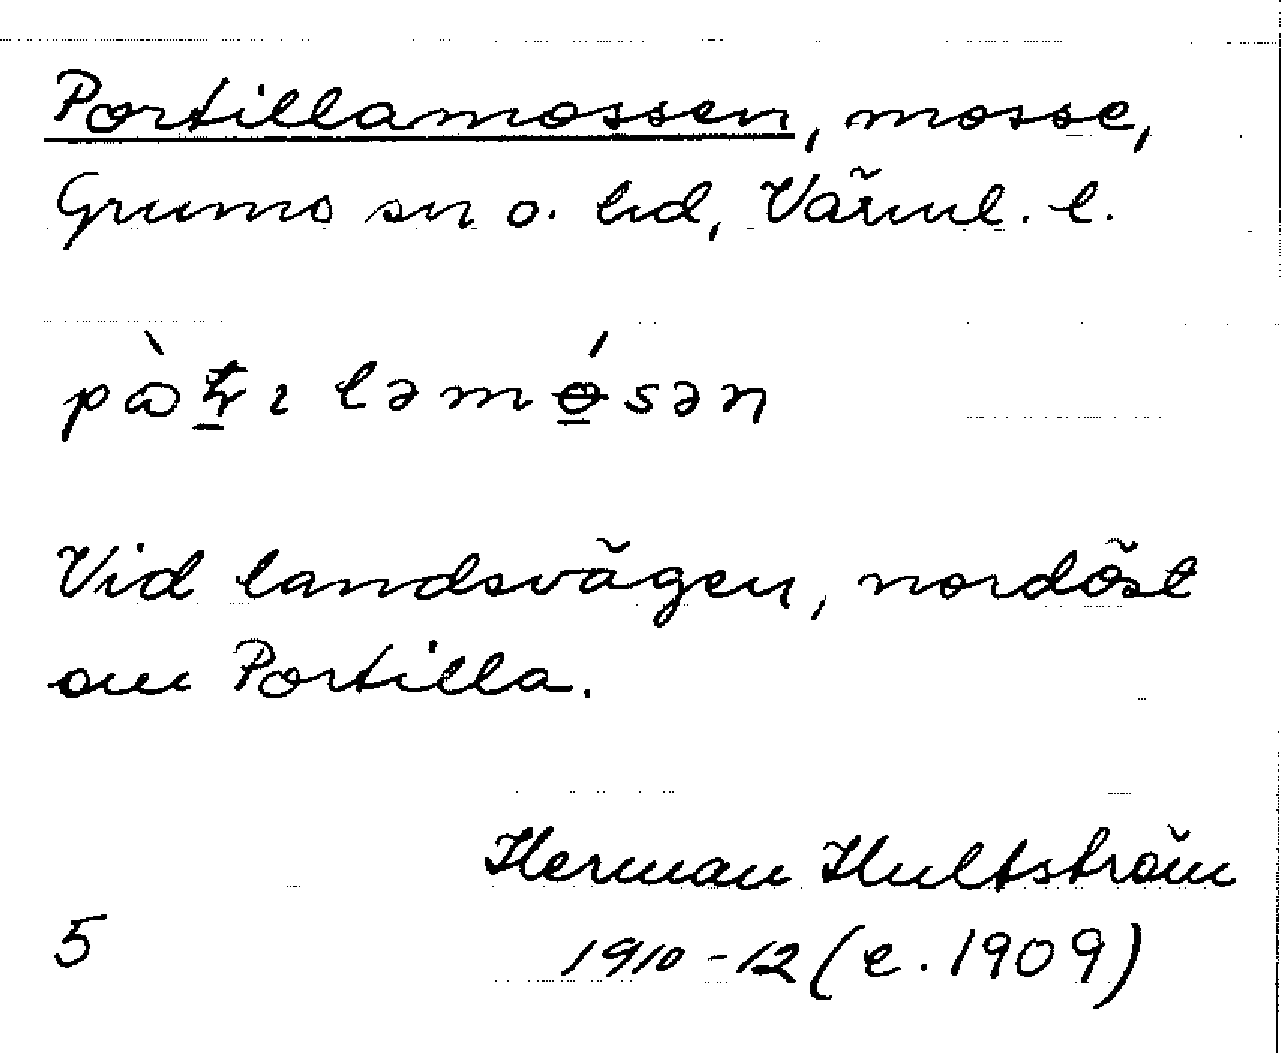 Portillamossen, mosse,
Grums sn o. hd, Värml. l.
Vid landsvägen, nordöst
om Portilla.
Herman Hultström
5 1910-12 (e. 1909)